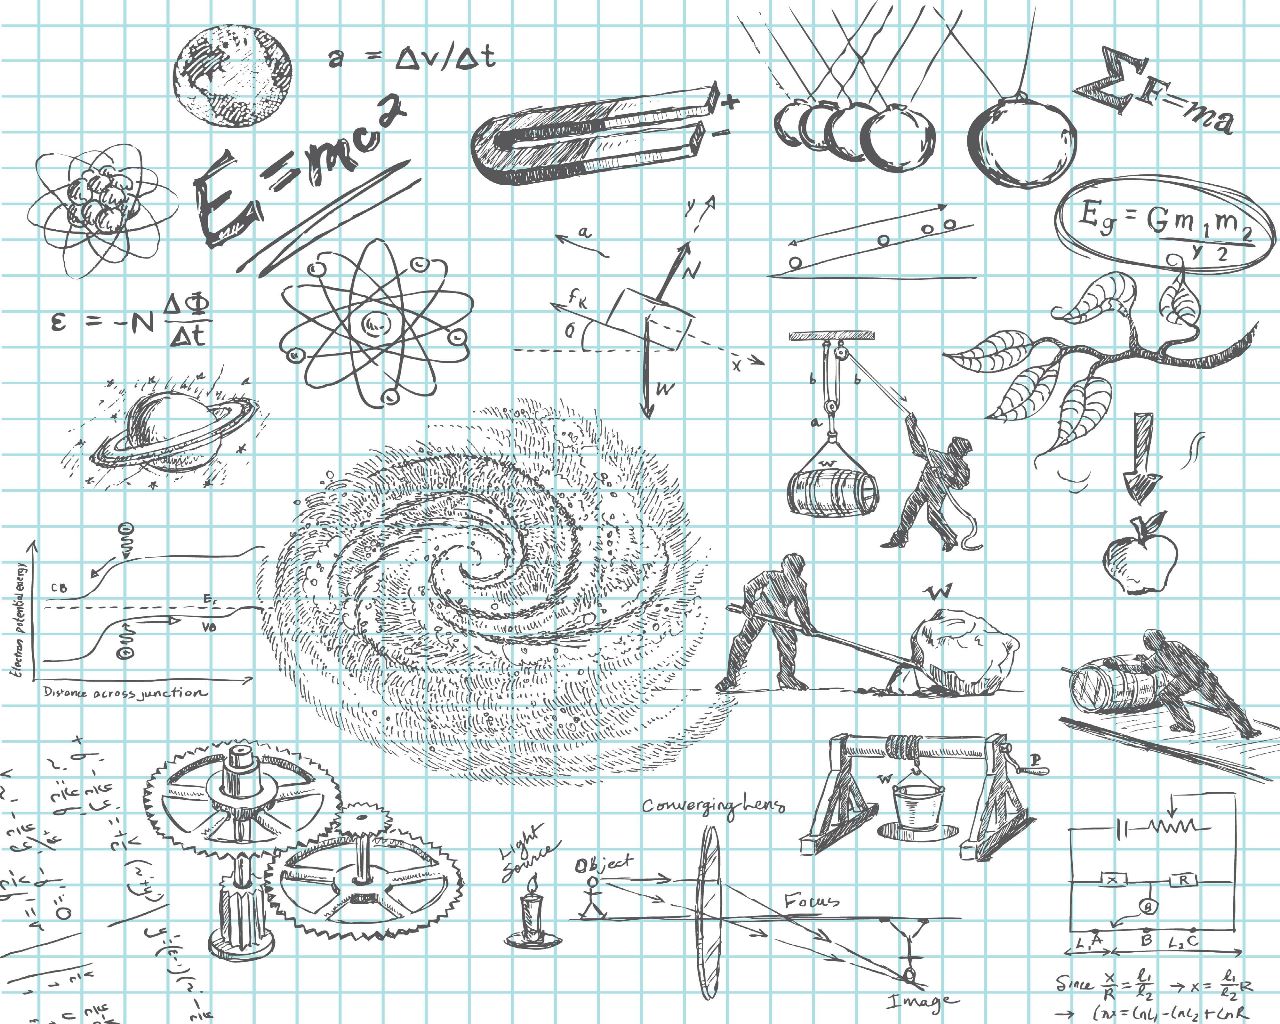 a = Δv/Δt
E=mc²
+
−
ΣF=ma
Eg = G m₁m₂ / y²
ε = -N ΔΦ/Δt
y
a
N
fk
θ
x
W
b
b
a
W
Electron potential energy
CB
Ef
VB
Distance across junction
W
W
P
Converging Lens
Light
Source
Object
Focus
Image
X
R
G
L₁ A B L₂ C
Since x/R = l₁/l₂ → x = l₁/l₂ R
→ lnx = lnl₁ - lnl₂ + lnR